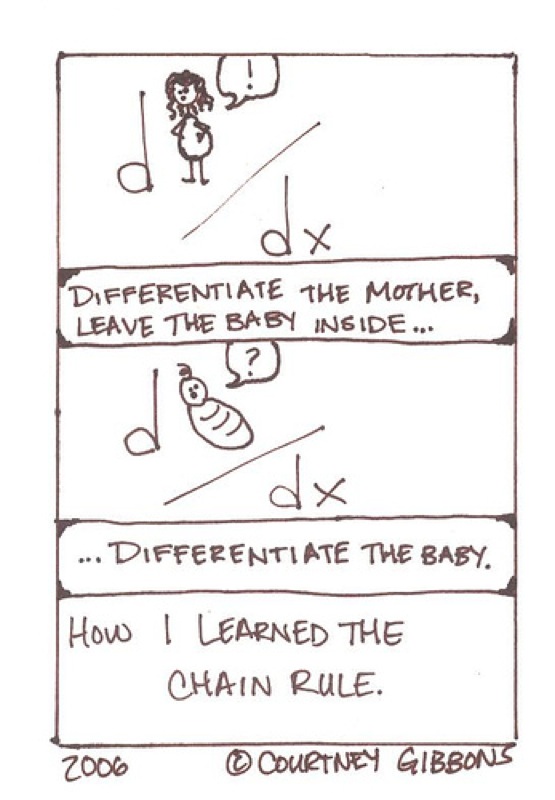 !
d
dx
DIFFERENTIATE THE MOTHER,
LEAVE THE BABY INSIDE...
?
d
dx
...DIFFERENTIATE THE BABY.
HOW I LEARNED THE
CHAIN RULE.
2006 © COURTNEY GIBBONS